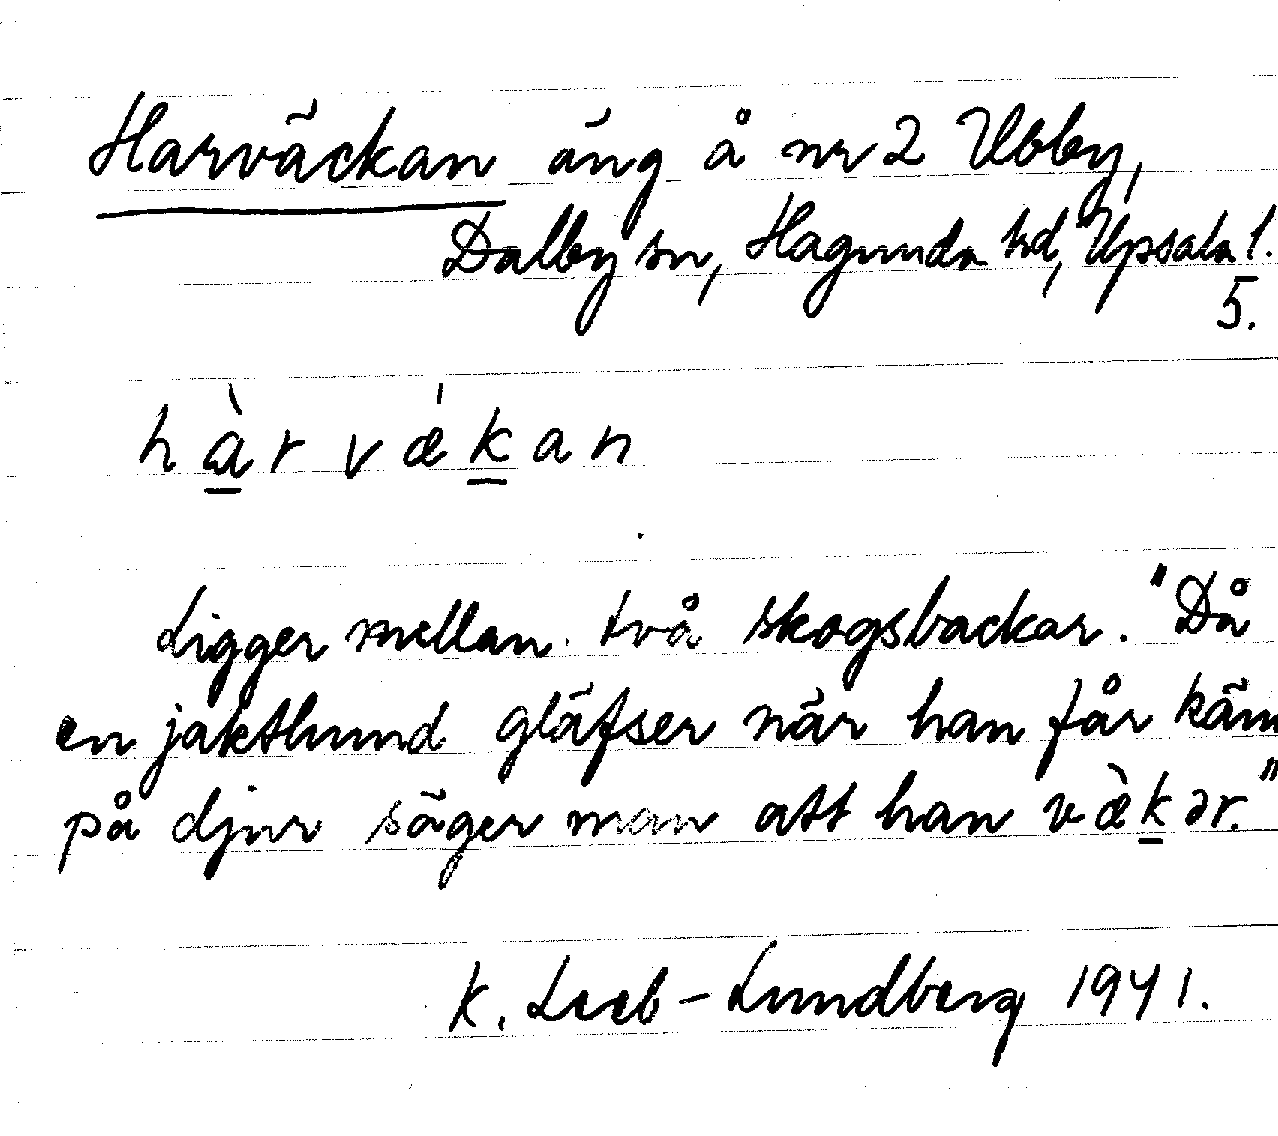 Harväckan äng å nr 2 Ubby,
Dalby sn, Hagunda hd, Upsala l.
5.
hàrvækan
Ligger mellan två skogsbackar. "Då
en jakthund gläfser när han får känn
på djur säger man att han vækər."
K. Leeb-Lundberg 1941.